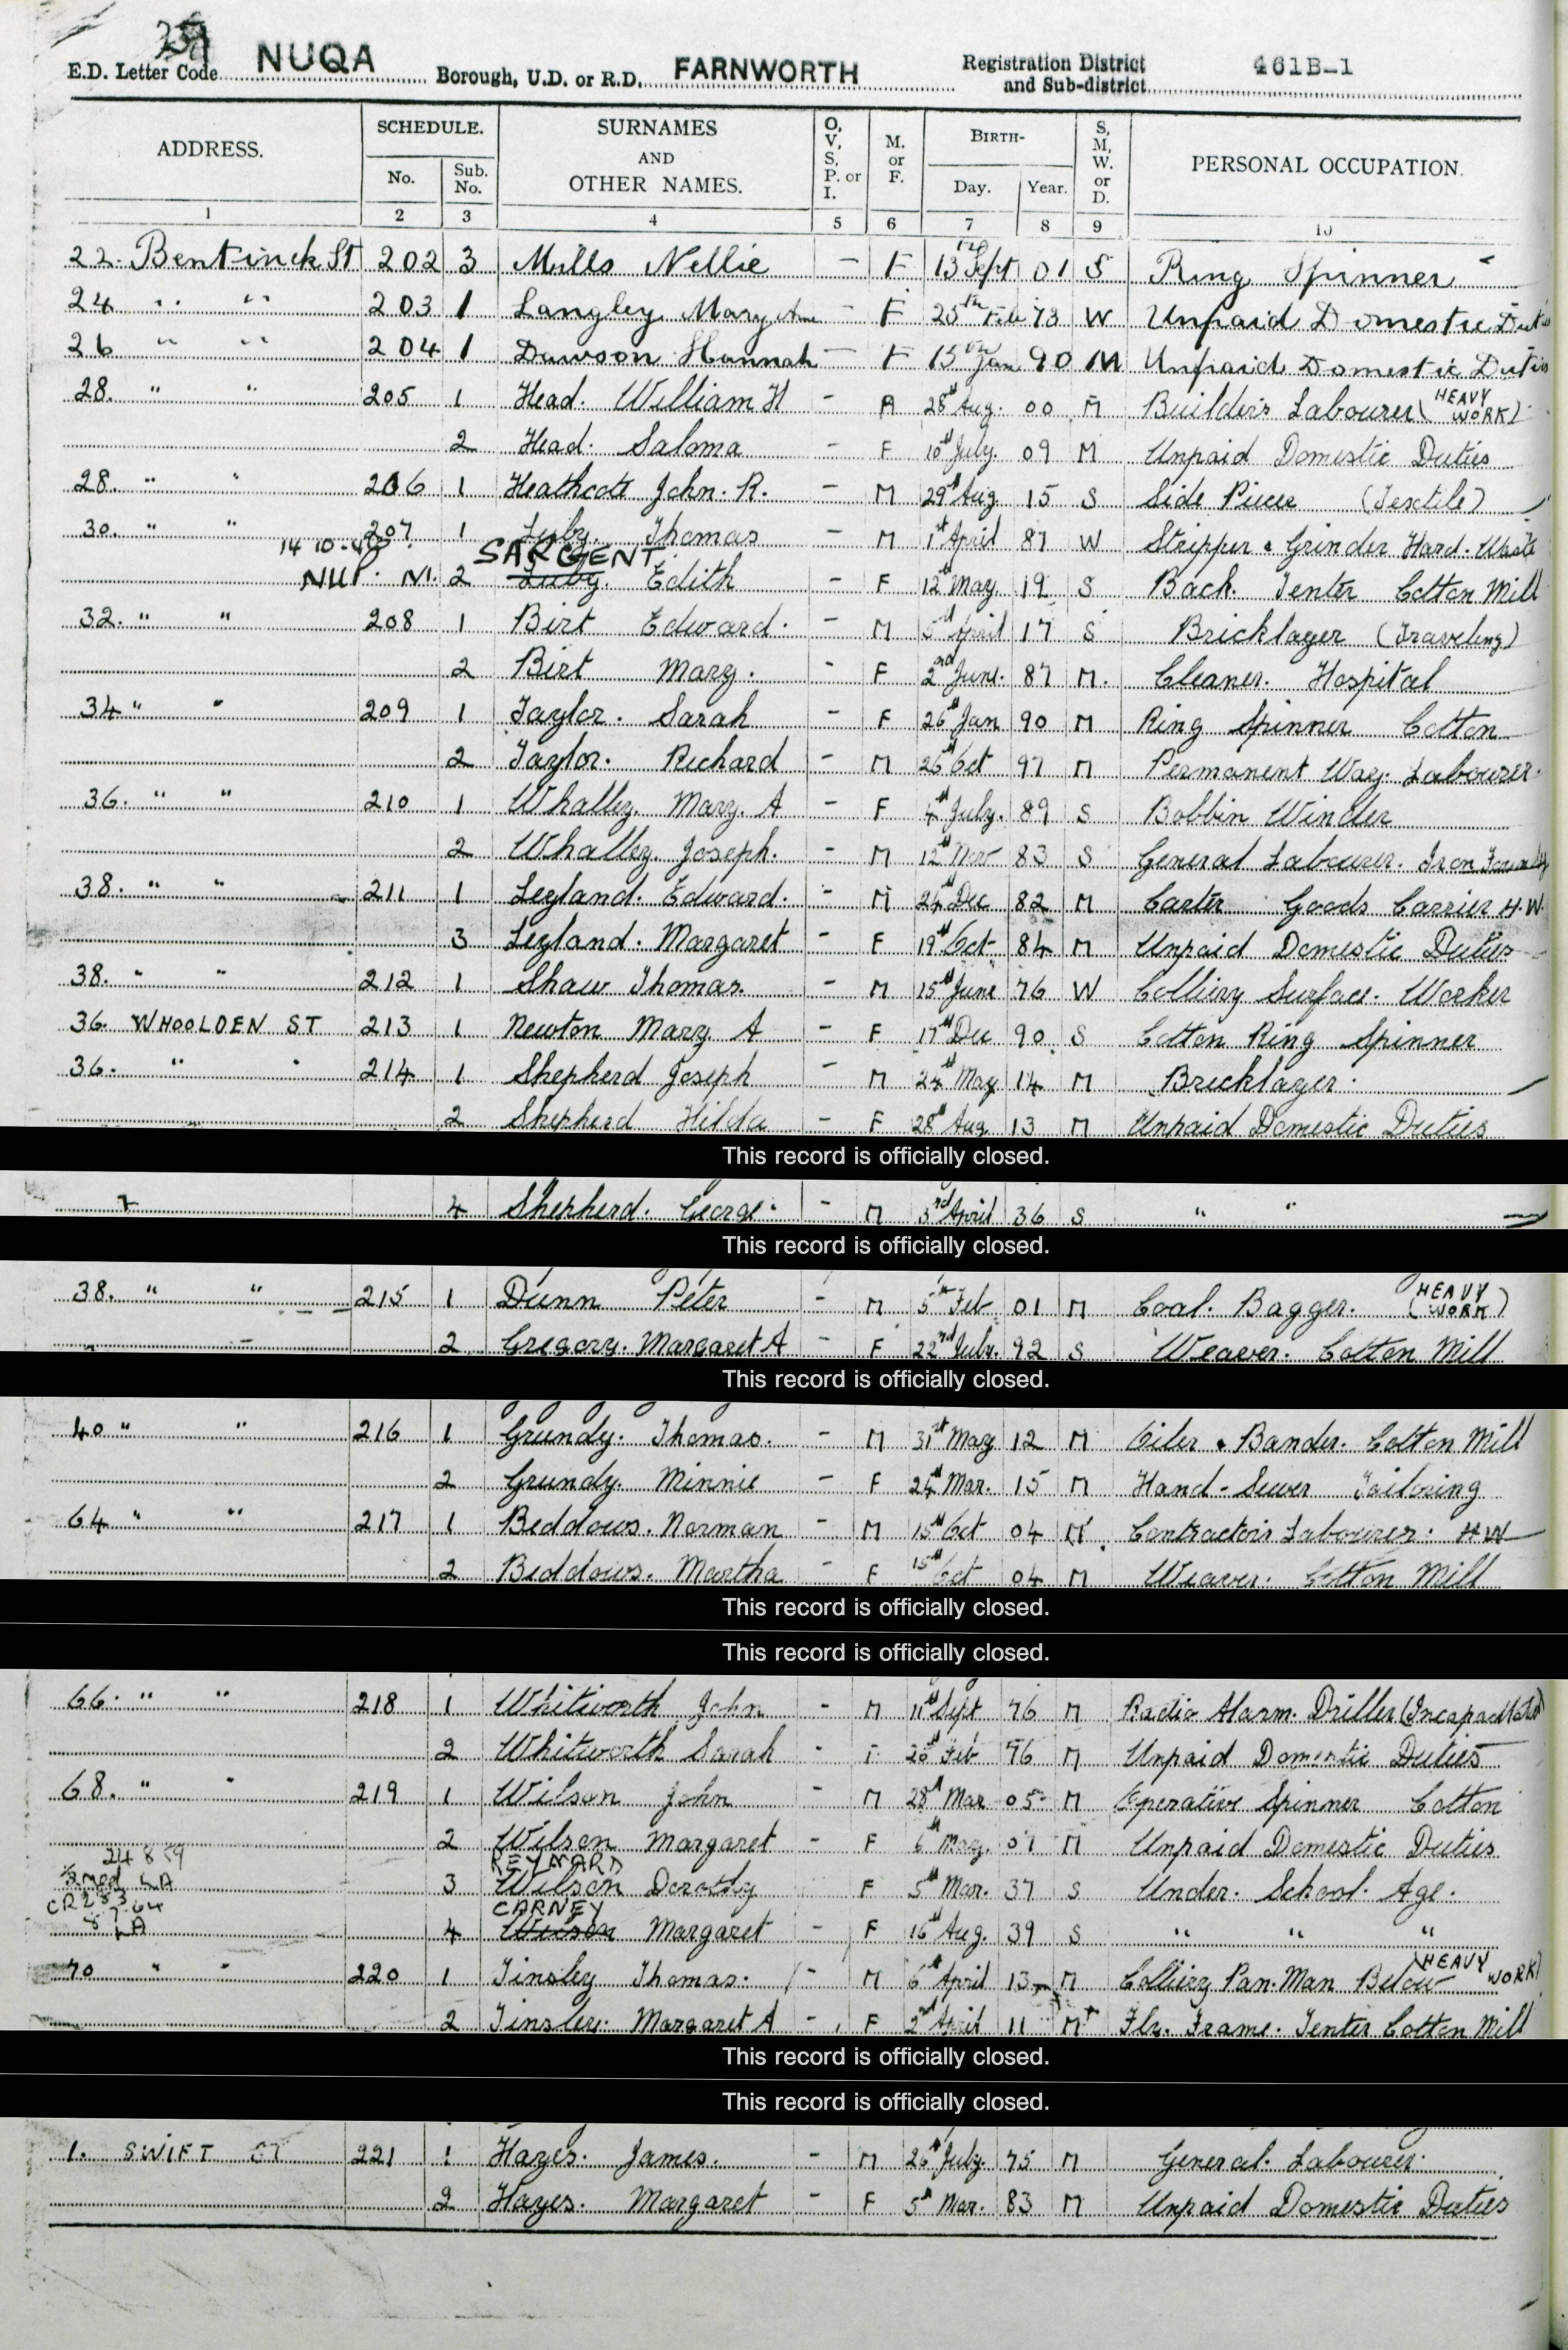 E.D. Letter Code NUQA Borough, U.D. or R.D. FARNWORTH Registration District and Sub-district 461B-1
ADDRESS. SCHEDULE. No. Sub. No. SURNAMES AND OTHER NAMES. O, V, S, P. or I. M. or F. BIRTH- Day. Year. S, M, W. or D. PERSONAL OCCUPATION.
1 2 3 4 5 6 7 8 9 10
22. Bentinck St 202 3 Mills Nellie - F 13th Sept 01 S Ring Spinner
24 " " 203 1 Langley Mary Ann - F 25th Feb 73 W Unpaid Domestic Duties
26 " " 204 1 Dawson Hannah - F 15th Jan 90 M Unpaid Domestic Duties
28. " " 205 1 Head. William H - M 28th Aug. 00 M Builder's Labourer (HEAVY WORK)
2 Head. Saloma - F 10th July. 09 M Unpaid Domestic Duties
28. " " 206 1 Heathcote John. R. - M 29th Aug. 15 S Side Piecer (Textile)
30. " " 207 1 Luby. Thomas - M 1st April 87 W Stripper & Grinder Hard. Waste
14 10-40 NUP. M. 2 SARGENT Luby. Edith - F 12th May. 19 S Back. Tenter Cotton Mill
32. " " 208 1 Birt Edward. - M 5th April 17 S Bricklayer (Traveling)
2 Birt Mary. - F 2nd June. 87 M. Cleaner. Hospital
34 " " 209 1 Taylor. Sarah - F 26th Jan 90 M Ring Spinner Cotton
2 Taylor. Richard - M 26th Oct 97 M Permanent Way. Labourer.
36. " " 210 1 Whalley. Mary. A - F 4th July. 89 S Bobbin Winder
2 Whalley. Joseph. - M 12th Nov 83 S General Labourer. Iron Foundry
38. " " 211 1 Leyland. Edward. - M 24th Dec 82 M Carter Goods Carrier H.W.
3 Leyland. Margaret - F 19th Oct 84 M Unpaid Domestic Duties
38. " " 212 1 Shaw Thomas. - M 15th June 76 W Colliery Surface. Worker
36. WHOOLDEN ST 213 1 Newton Mary. A - F 17th Dec 90 S Cotton Ring Spinner
36. " " 214 1 Shepherd Joseph - M 24th May 14 M Bricklayer.
2 Shepherd Hilda - F 28th Aug 13 M Unpaid Domestic Duties
This record is officially closed.
4 Shepherd. George. - M 3rd April 36 S " "
This record is officially closed.
38. " " 215 1 Dunn Peter - M 5th Feb 01 M Coal. Bagger. (HEAVY WORK)
2 Gregory. Margaret A - F 22nd July. 92 S Weaver. Cotton Mill
This record is officially closed.
40 " " 216 1 Grundy. Thomas. - M 31st May 12 M Oiler & Bander. Cotton Mill
2 Grundy. Minnie - F 24th Mar. 15 M Hand-Sewer Tailoring
64 " " 217 1 Beddows. Norman - M 15th Oct 04 M. Contractors Labourer. H W
2 Beddows. Martha - F 15th Oct 04 M Weaver. Cotton Mill
This record is officially closed.
This record is officially closed.
66. " " 218 1 Whitworth John - M 11th Sept 76 M Radio Alarm. Driller (Incapacitated)
2 Whitworth Sarah - F 28th Feb 76 M Unpaid Domestic Duties
68. " " 219 1 Wilson John M 28th Mar 05 M Operative Spinner Cotton
2 Wilson Margaret - F 6th May. 07 M Unpaid Domestic Duties
24 8 59 LA 3 REYNARD Wilson Dorothy F 5th Mar. 37 S Under. School. Age.
CR283 8.7.64 LA 4 CARNEY Wilson Margaret - F 16th Aug. 39 S " " "
70 " " 220 1 Tinsley Thomas. - M 6th April 13 M Colliery Pan. Man Below (HEAVY WORK)
2 Tinsley. Margaret A - F 2nd April 11 M Fly. Frame. Tenter Cotton Mill
This record is officially closed.
This record is officially closed.
1. SWIFT ST 221 1 Hayes. James. - M 26th July. 75 M General. Labourer.
2 Hayes. Margaret - F 5th Mar. 83 M Unpaid Domestic Duties